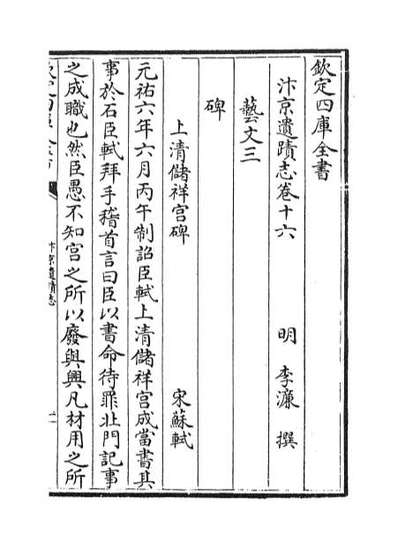 欽定四庫全書
汴京遺蹟志卷十六
明 李濂 撰
藝文三
碑
上清儲祥宮碑
宋蘇軾
元祐六年六月丙午制詔臣軾上清儲祥宮成當書其
事於石臣軾拜手稽首言曰臣以書命待罪北門記事
之成職也然臣愚不知宮之所以廢與興凡材用之所
汴京遺蹟志